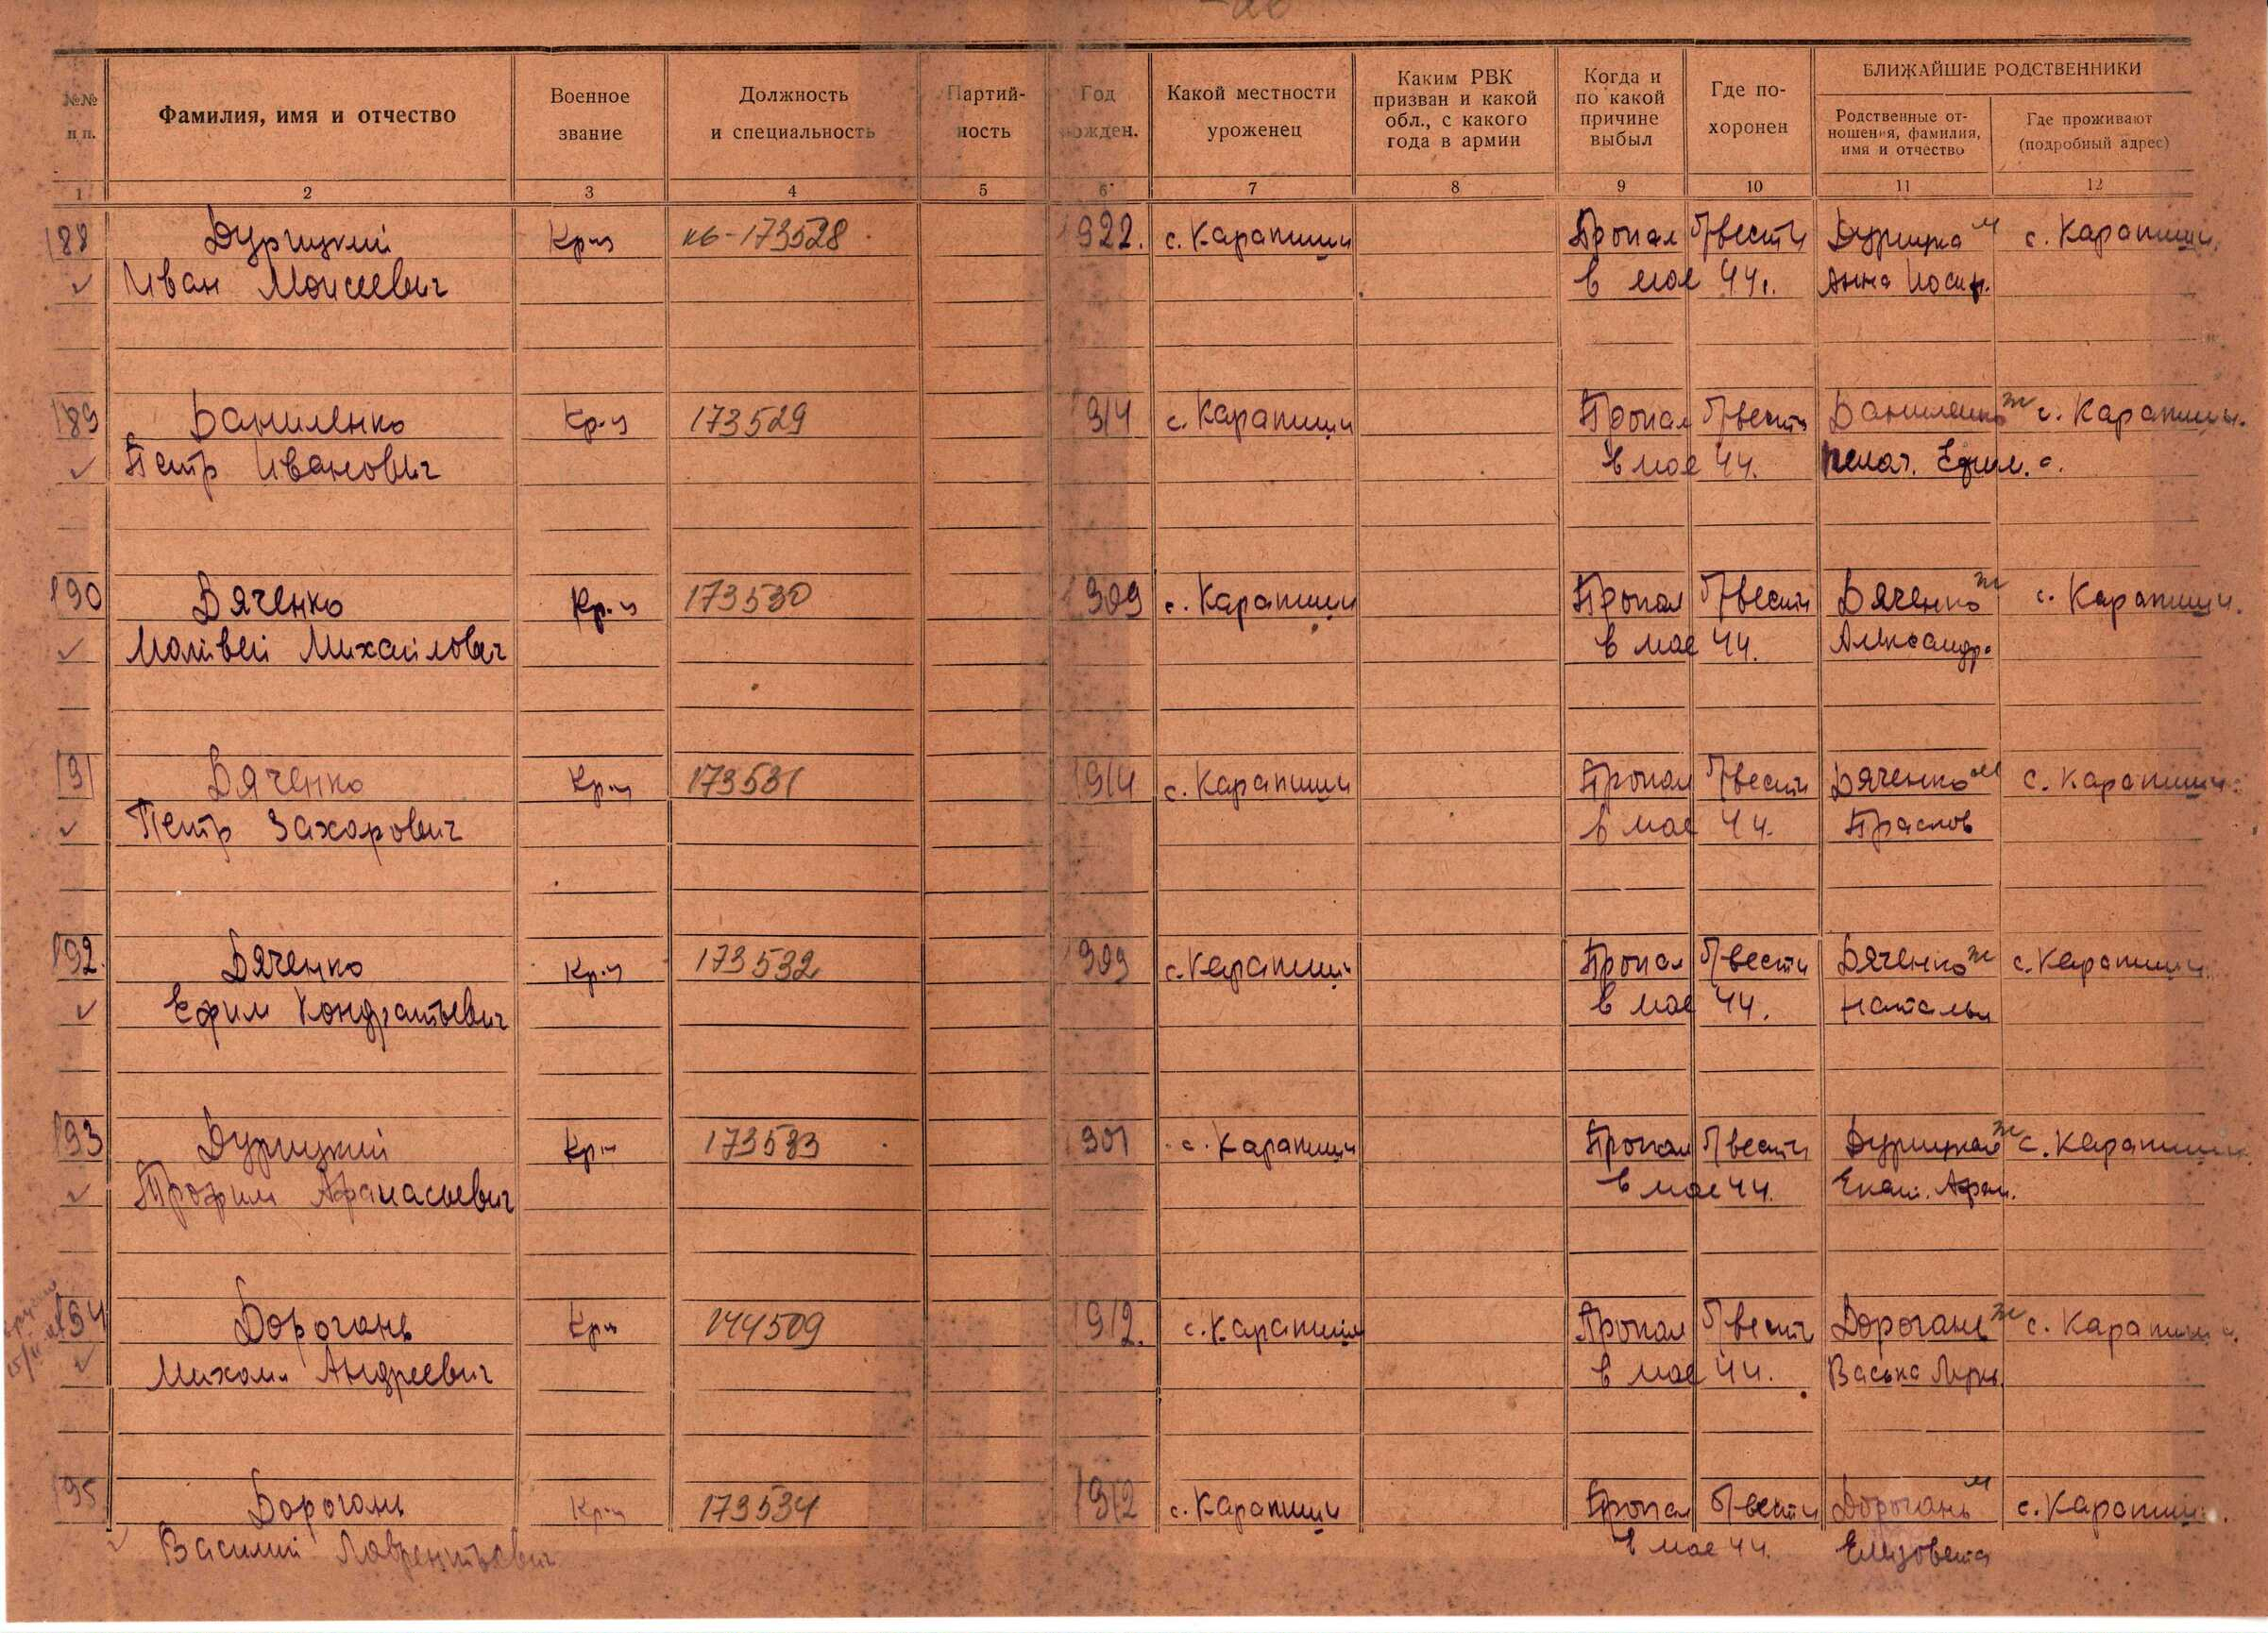 №№ п п.
Фамилия, имя и отчество
Военное звание
Должность и специальность
Партий-ность
Год рожден.
Какой местности уроженец
Каким РВК призван и какой обл., с какого года в армии
Когда и по какой причине выбыл
Где по-хоронен
БЛИЖАЙШИЕ РОДСТВЕННИКИ
Родственные от-ношения, фамилия, имя и отчество
Где проживают (подробный адрес)
1 2 3 4 5 6 7 8 9 10 11 12
188 Дурицкий Кр-ц кв-173528 1922. с. Карапиши Пропал б/вести Дурицка м с. Карапиши.
Иван Моисеевич в мае 44г. Анна Иосиф.
189 Даниленко Кр-ц 173529 1914 с. Карапиши Пропал б/вести Даниленко ж с. Карапиши.
Петр Иванович в мае 44. Пелаг. Ефим. с.
190 Дяченко Кр-ц 173530 1909 с. Карапиши Пропал б/вести Дяченко ж с. Карапиши.
Матвей Михайлович в мае 44. Александр.
191 Дяченко Кр-ц 173531 1914 с. Карапиши Пропал б/вести Дяченко м с. Карапиши.
Петр Захарович в мае 44. Прасков
192. Дяченко Кр-ц 173532 1909 с. Карапиши Пропал б/вести Дяченко ж с. Карапиши.
Ефим Кондратьевич в мае 44. Наталья
193 Дурицкий Кр-ц 173533 1901 с. Карапиши Пропал б/вести Дурицкая ж с. Карапиши.
Трофим Афанасьевич в мае 44. Екат. Афан.
194 Дорогань Кр-ц 144509 1912. с. Карапиши Пропал б/вести Дорогань ж с. Карапиши.
Михаил Андреевич в мае 44. Васька
195 Дорогань Кр-ц 173534 1912 с. Карапиши Пропал б/вести Дорогань м с. Карапиши.
Василий Лаврентьевич в мае 44. Елизовета